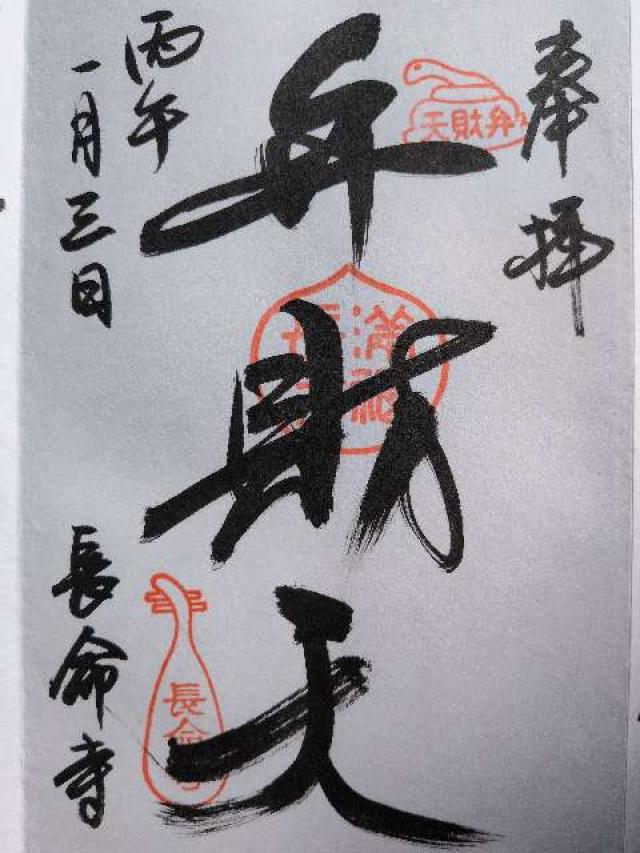 奉拝
弁財天
弁財天
満福
丙午
一月三日
長命寺
長命寺